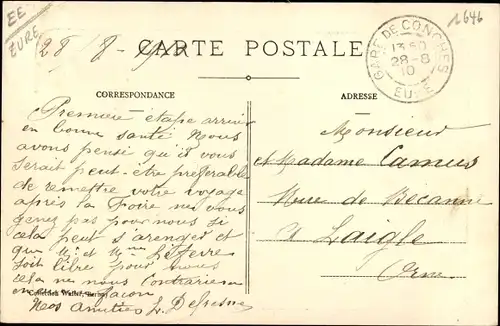 EE
EURE
28 8
1646
CARTE POSTALE
GARE DE CONCHES
13 50
28-8
10
EURE
CORRESPONDANCE
ADRESSE
Première étape arrivée
en bonne santé Nous
avons pensé qu'il vous
serait peut-être préférable
de remettre votre voyage
après la Foire ne vous
genez pas pour nous si
cela peut s'arenger et
que Mr et Mme Lefevre
soit libre pour nous
cela ne nous contrarie
en façon
Collection Walter, Bernay
Nos amitiés L. Defresne
Monsieur
et Madame Camus
de Bécanne
Laigle
Orne